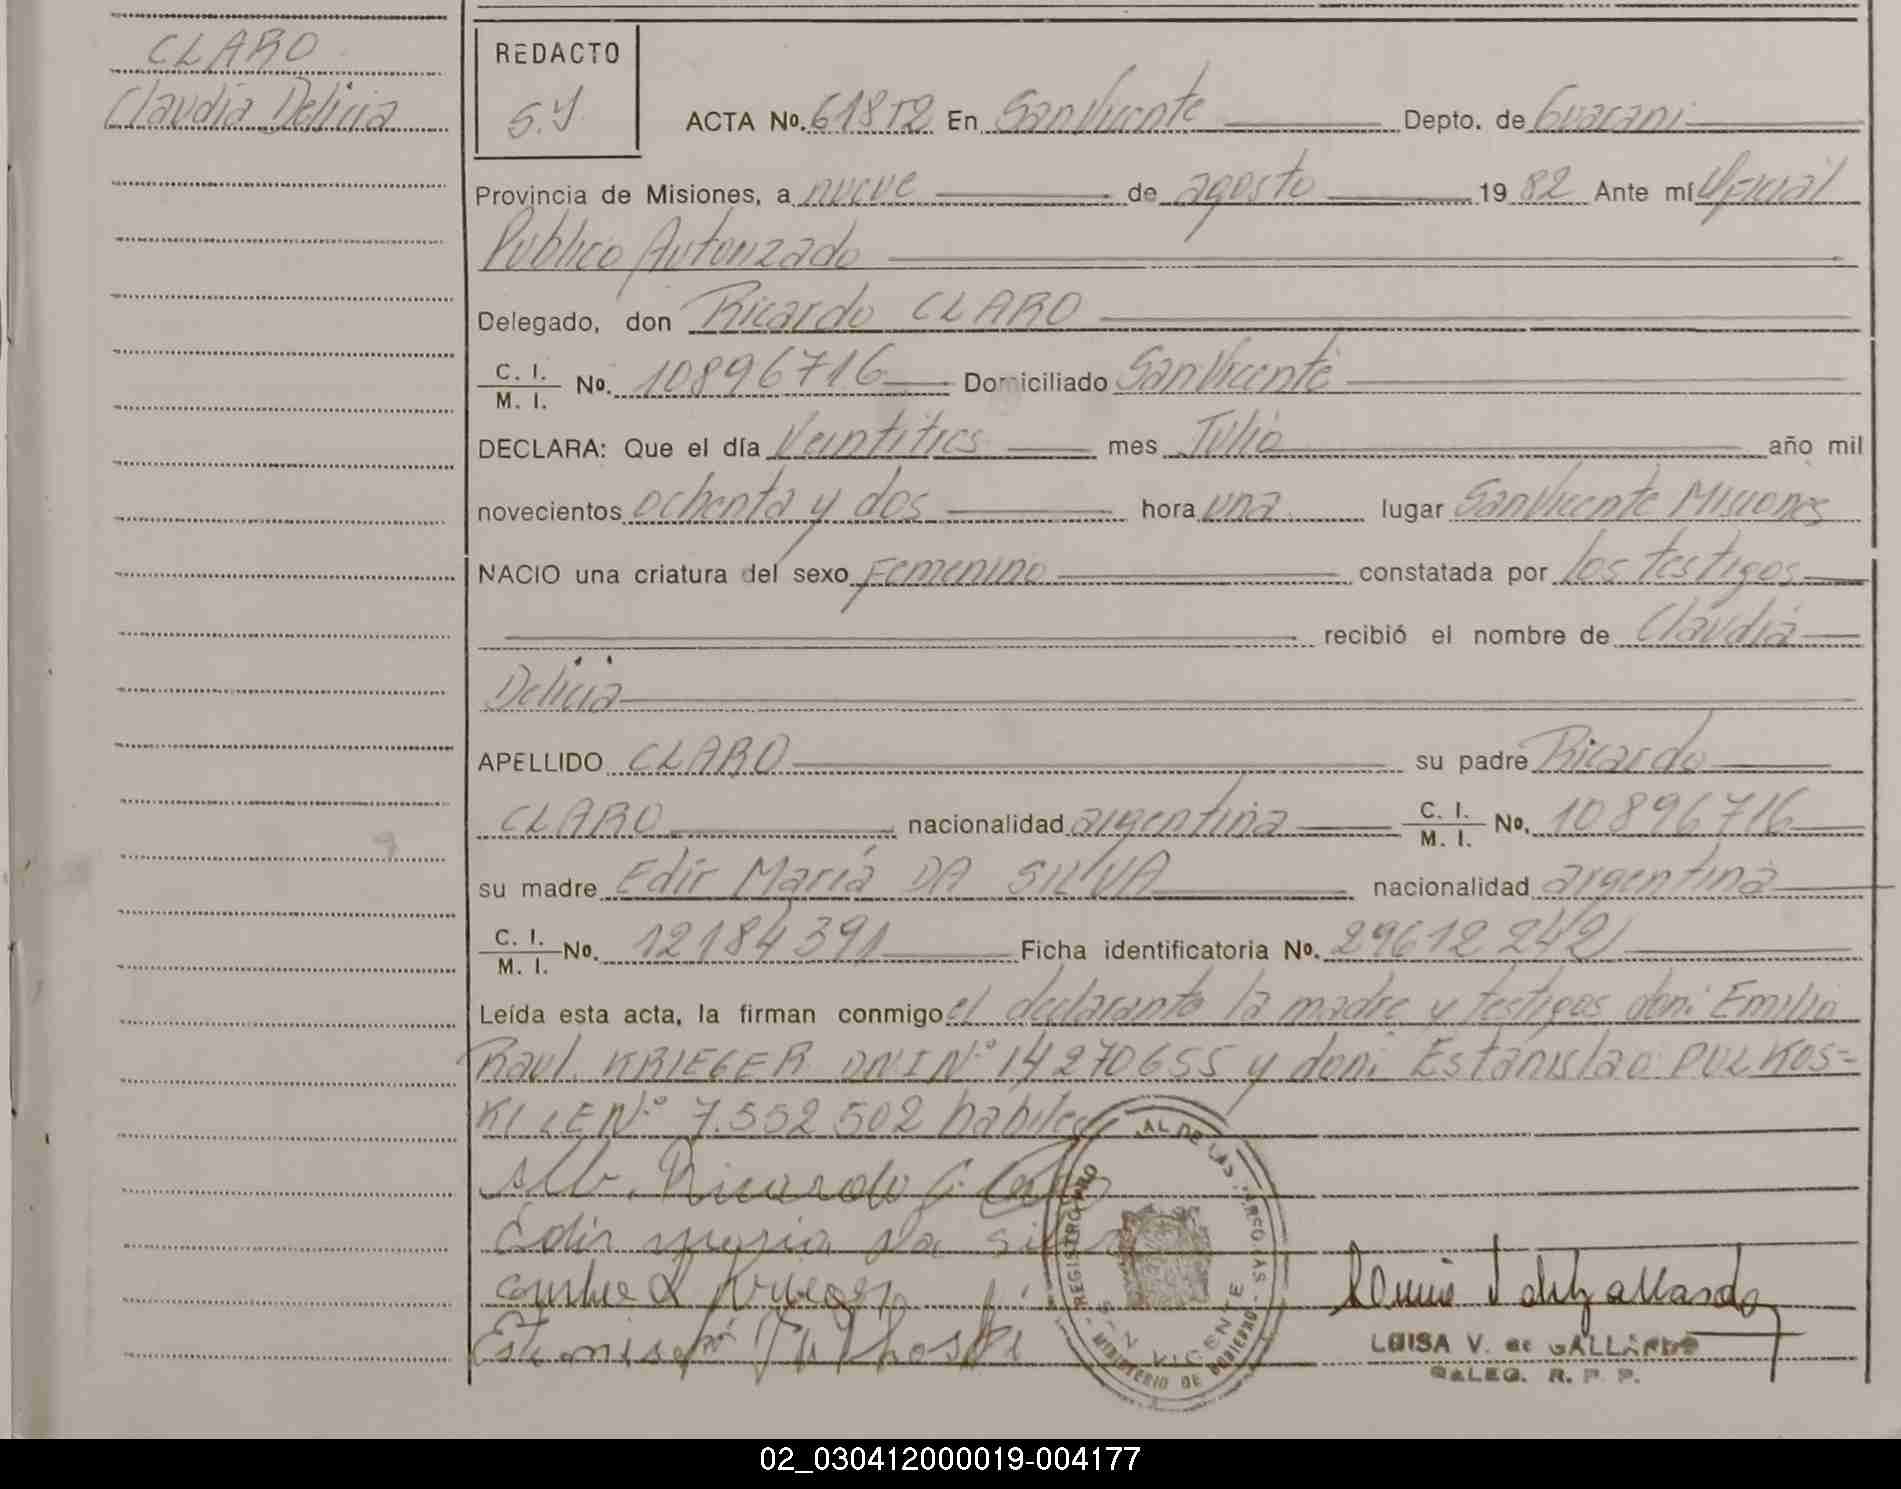 CLARO
Claudia Delicia
REDACTO
S.Y.
ACTA No. 618T2 En San Vicente Depto. de Guarani
Provincia de Misiones, a nueve de agosto 1982 Ante mí Oficial
Publico Autorizado
Delegado, don Ricardo CLARO
C. I. M. I. No. 10896716 Domiciliado San Vicente
DECLARA: Que el día Veintitres mes Julio año mil
novecientos ochenta y dos hora una lugar San Vicente Misiones
NACIO una criatura del sexo Femenino constatada por los testigos
recibió el nombre de Claudia
Delicia
APELLIDO CLARO su padre Ricardo
CLARO nacionalidad argentina C. I. M. I. No. 10896716
su madre Edir María DA SILVA nacionalidad argentina
C. I. M. I. No. 12184391 Ficha identificatoria No. 29612242
Leída esta acta, la firman conmigo el declarante la madre y testigos don: Emilio
Raul KRIEGER DNI Nº 14270655 y don: Estanislao PULKOS=
KI LE Nº 7.552 502 habiles
Ricardo
Edir maria da silva
Krieger
REGISTRO PROVINCIAL DE LAS PERSONAS
SAN VICENTE
MINISTERIO DE GOBIERNO
LUISA V. de GALLARDO
DELEG. R. P. P.
02_030412000019-004177